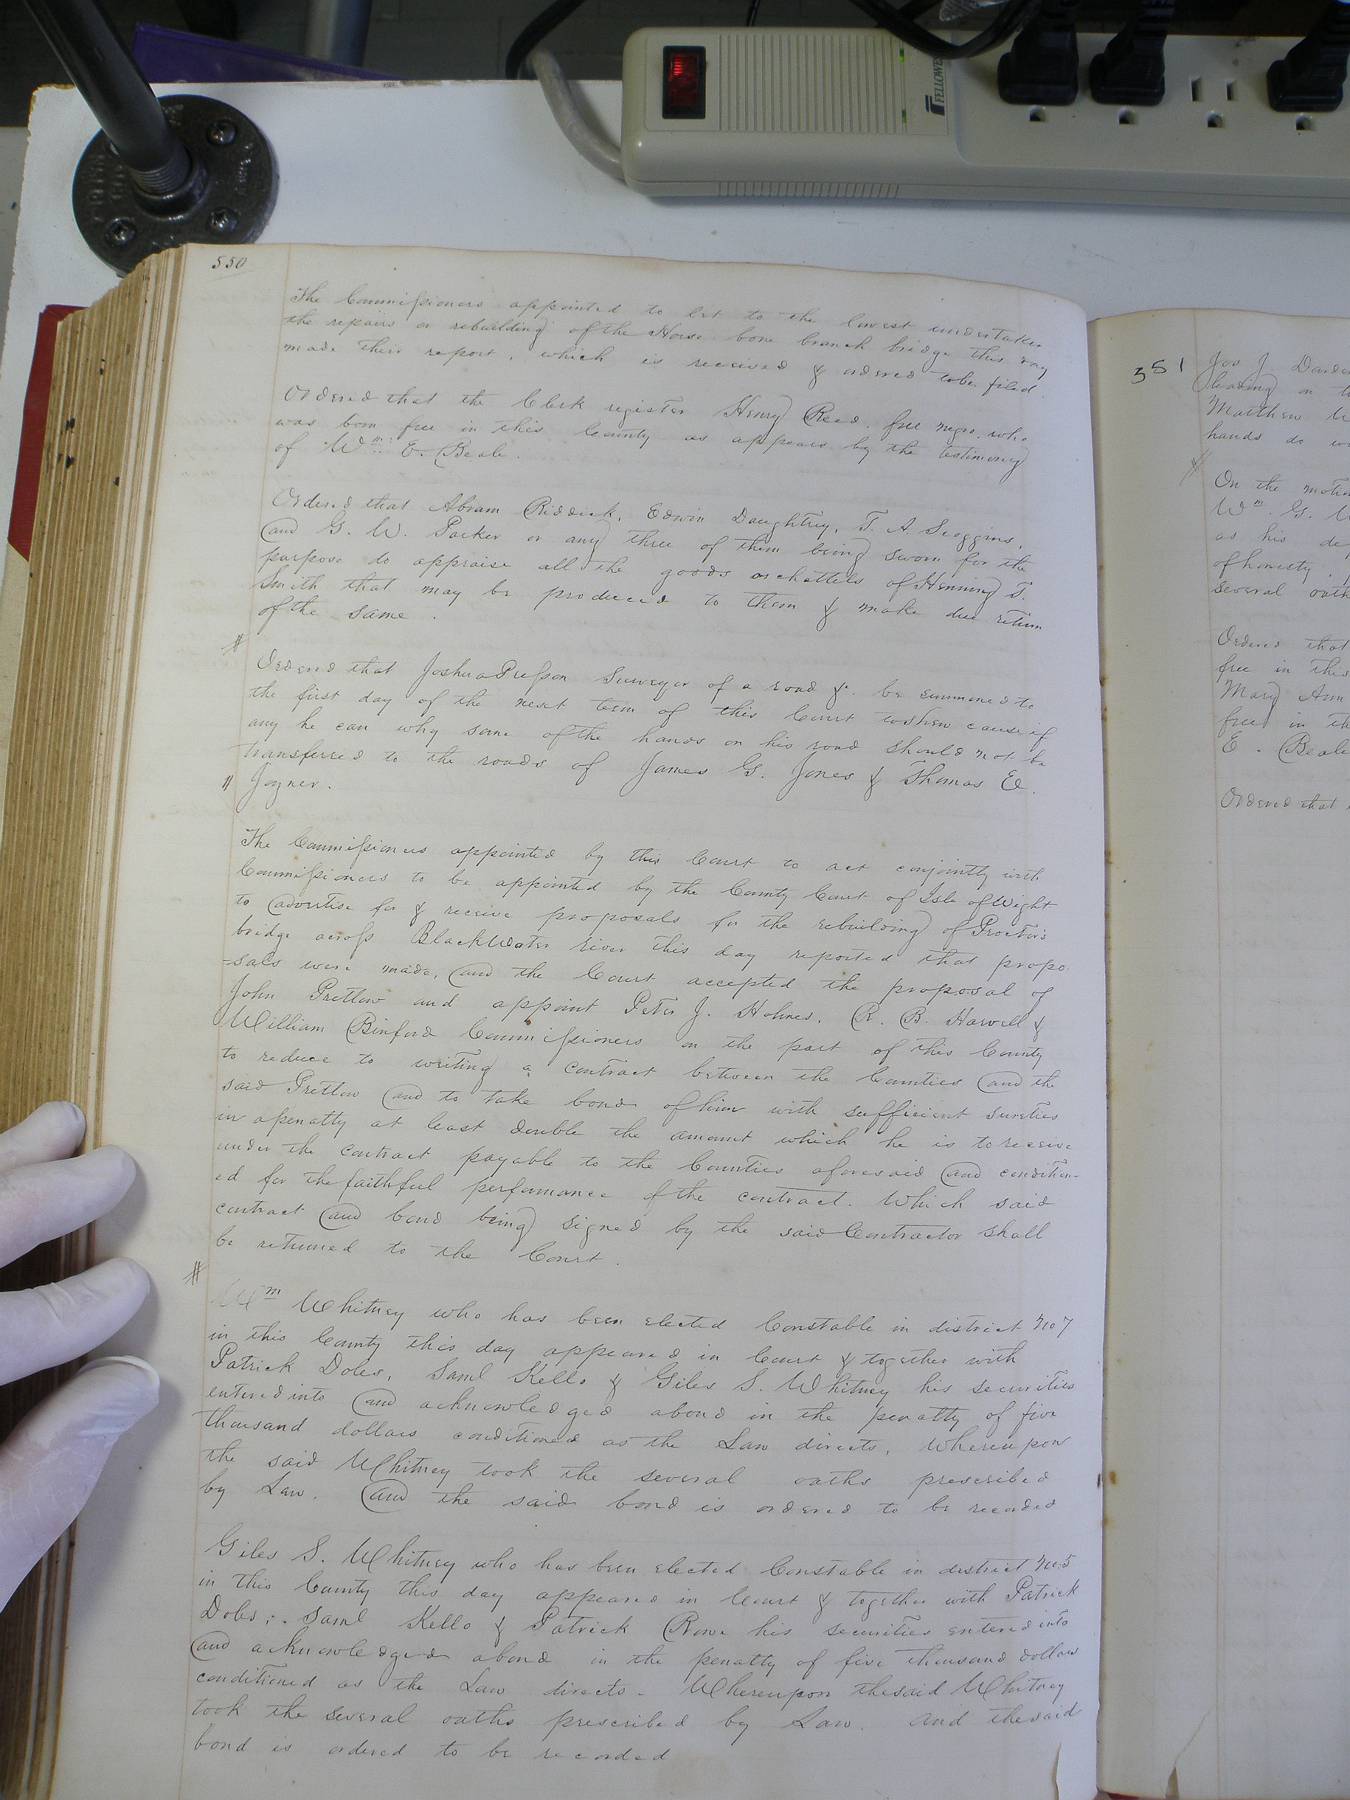 FELLOWES
550
The Commissioners appointed to let to the lowest undertaker
the repairs or rebuilding of the Horse bone branch bridge this day
made their report, which is received & ordered to be filed.
Ordered that the Clerk register Henry Reed, free negro, who
was born free in this County as appears by the testimony
of Wm. E. Beale.
Ordered that Abram Riddick, Edwin Daughtrey, T. A. Scoggins,
and G. W. Parker or any three of them being sworn for the
purpose do appraise all the goods or chattels of Henning T.
Smith that may be produced to them & make due return
of the same.
#
Ordered that Joshua Presson Surveyor of a road &c be summoned to
the first day of the next term of this Court to shew cause if
any he can why some of the hands on his road should not be
transferred to the roads of James G. Jones & Thomas E.
" Joyner.
The Commissioners appointed by this Court to act conjointly with
Commissioners to be appointed by the County Court of Isle of Wight
to advertise for & receive proposals for the rebuilding of Proctor's
bridge across BlackWater river this day reported that propo
-sals were made, and the Court accepted the proposal of
John Pretlow and appoint Peter J. Holmes, R. B. Harvell &
William Binford Commissioners on the part of this County
to reduce to writing a contract between the Counties and the
said Pretlow and to take bond of him with sufficient sureties
in a penalty at least double the amount which he is to receive
under the contract payable to the Counties aforesaid and condition-
ed for the faithful performance of the contract. Which said
contract and bond being signed by the said Contractor shall
be returned to the Court.
#
Wm Whitney who has been elected Constable in district No 7
in this County this day appeared in Court & together with
Patrick Doles, Saml Kello & Giles S. Whitney his securities
entered into and acknowledged a bond in the penalty of five
thousand dollars conditioned as the Law directs, whereupon
the said Whitney took the several oaths prescribed
by Law. and the said bond is ordered to be recorded
Giles S. Whitney who has been elected Constable in district No. 5
in this County this day appeared in Court & together with Patrick
Doles, Saml Kello & Patrick Rowe his securities entered into
and acknowledged a bond in the penalty of five thousand dollars
conditioned as the Law directs. Whereupon the said Whitney
took the several oaths prescribed by Law. and the said
bond is ordered to be recorded
351
Jos J.
on
Matthew
hands do
On the motion
Wm. G.
as his
of honesty
several oath
Ordered that
free in this
Mary Ann
free in the
E. Beale
Ordered that